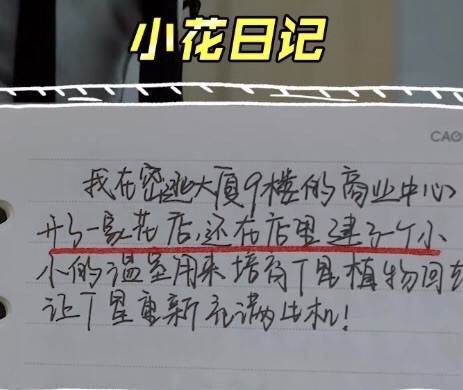 小花日记
CAO
我在密逃大厦9楼的商业中心
开了一家花店,还在店里建了个小
小的温室用来培育丁星植物回
让丁星重新充满生机!